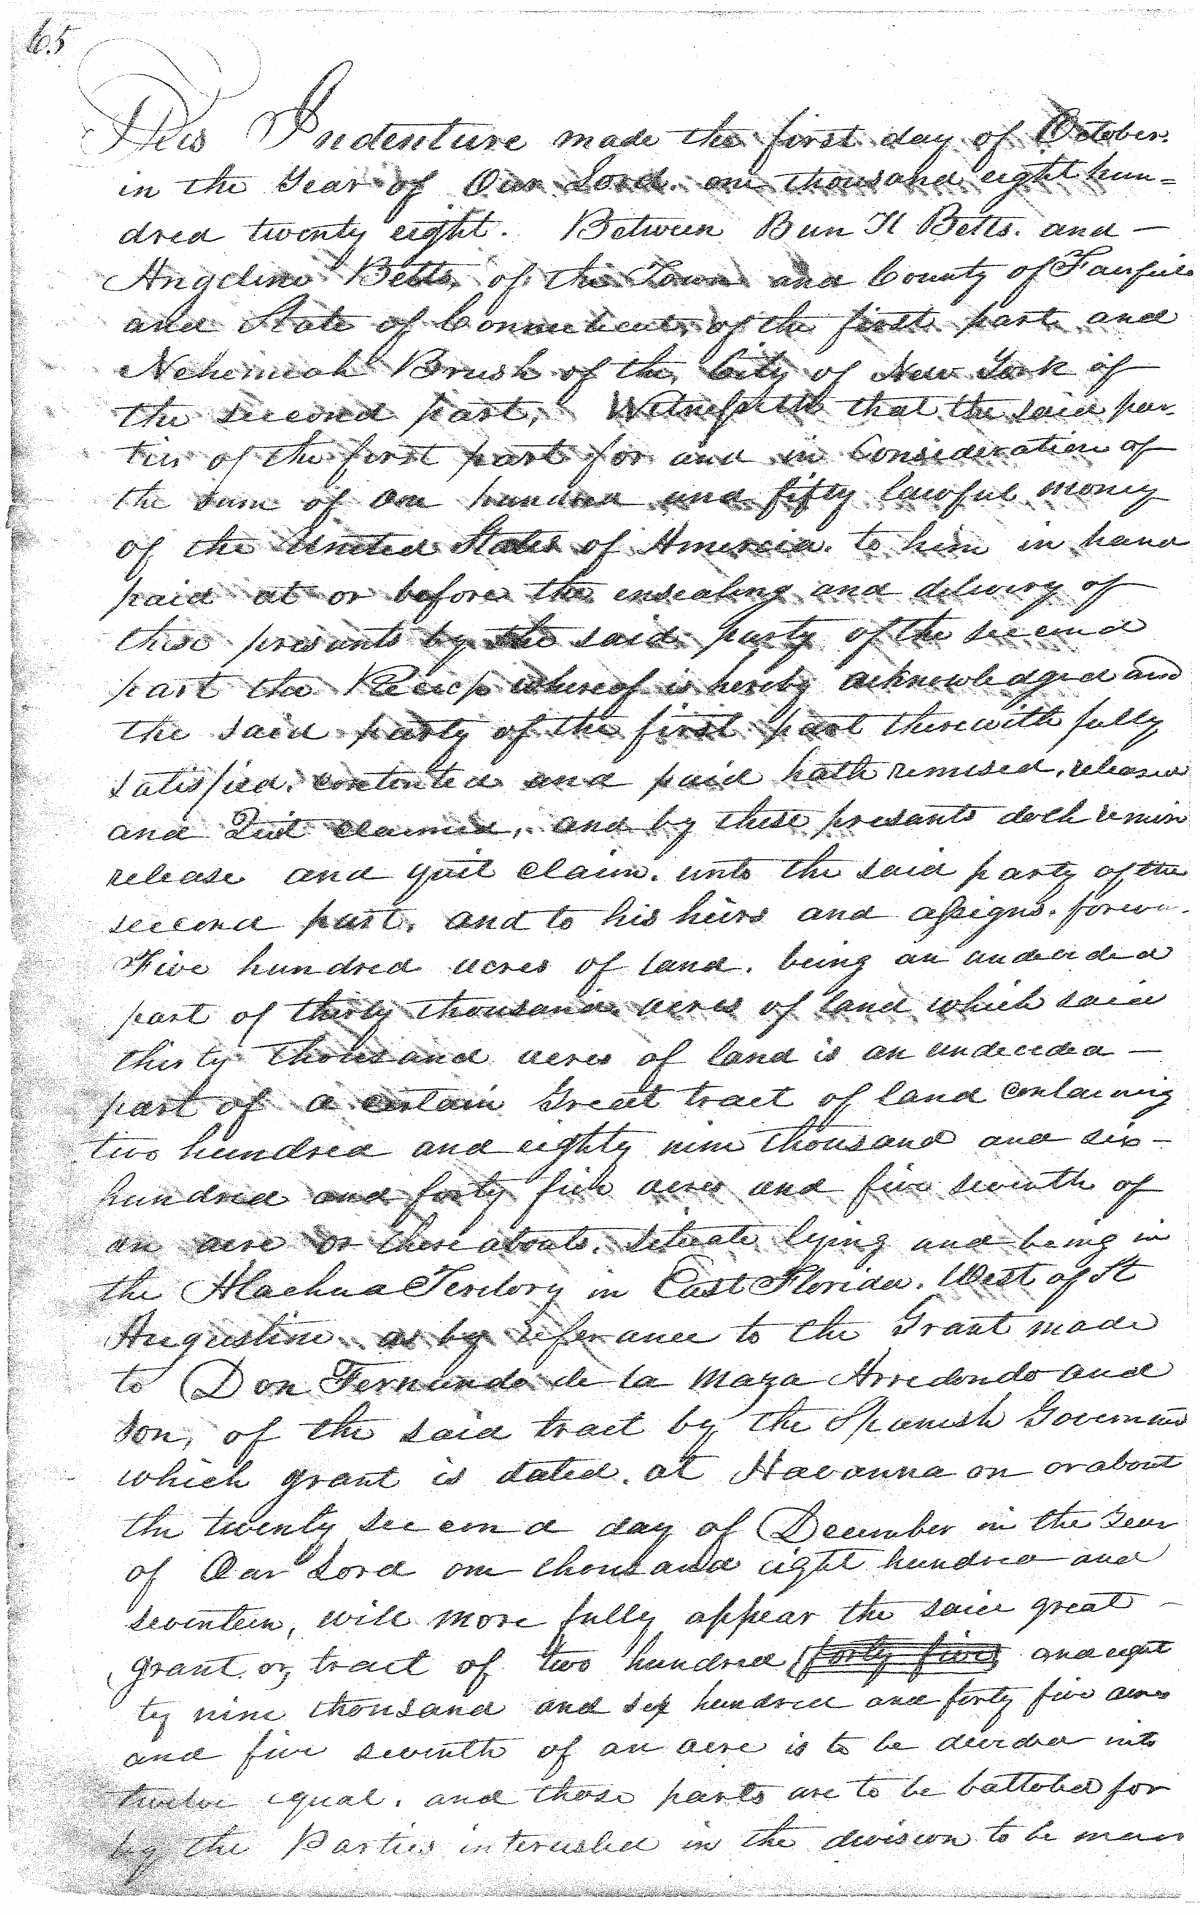 65
This Indenture made the first day of October.
in the Year of Our Lord. one thousand eight hun=
dred twenty eight. Between Bun H Betts. and —
Angeline Betts, of the Town and County of Fairfield
and State of Connecticut, of the first part, and
Nehemiah Brush of the City of New York of
the second part, Witnesseth that the said par-
ties of the first part for and in Consideration of
the sum of one hundred and fifty lawful money
of the United States of America. to him in hand
paid at or before the ensealing and delivery of
these presants by the said party of the second
part the Receip whereof is hereby acknowledged and
the said party of the first part therewith fully
satisfied. contented and paid hath remised, released
and Quit claimed, and by these presants doth remise
release and quit claim. unto the said party of the
second part, and to his heirs and assigns. forever.
Five hundred acres of land. being an undevided
part of thirty thousand acres of land which said
thirty thousand acres of land is an undecided —
part of a certain Great tract of land containing
two hundred and eighty nine thousand and six —
hundred and forty five acres and five seventh of
an acre or there abouts. situate lying and being in
the Alachua Teritory in East Florida. West of St
Augustine. as by referance to the Grant made
to Don Fernando de la Maza Arredondo and
Son, of the said tract by the Spanish Government
which grant is dated. at Havanna on or about
the twenty second day of December in the Year
of Our Lord one thousand eight hundred and
seventeen, will more fully appear the said great —
grant or, tract of two hundred forty five and eigh
ty nine thousand and six hundred and forty five acres
and five seventh of an acre is to be devided into
twelve equal. and those parts are to be balloted for
by the Parties interested in the division to be made